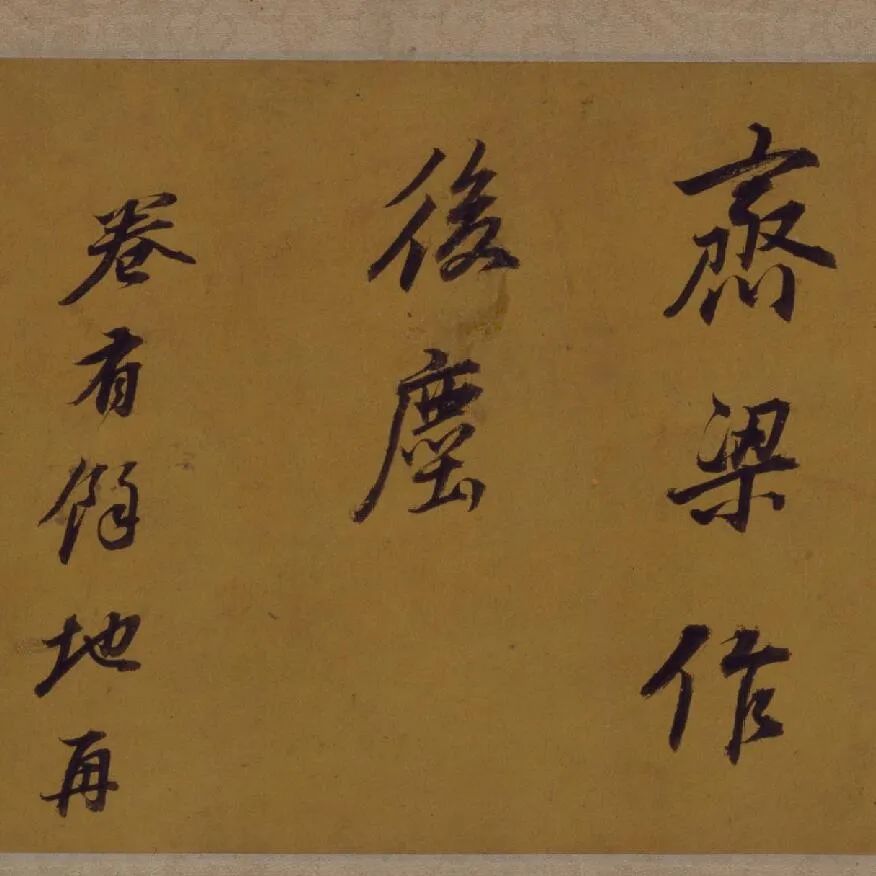 齋梁作
後塵
卷有餘地再